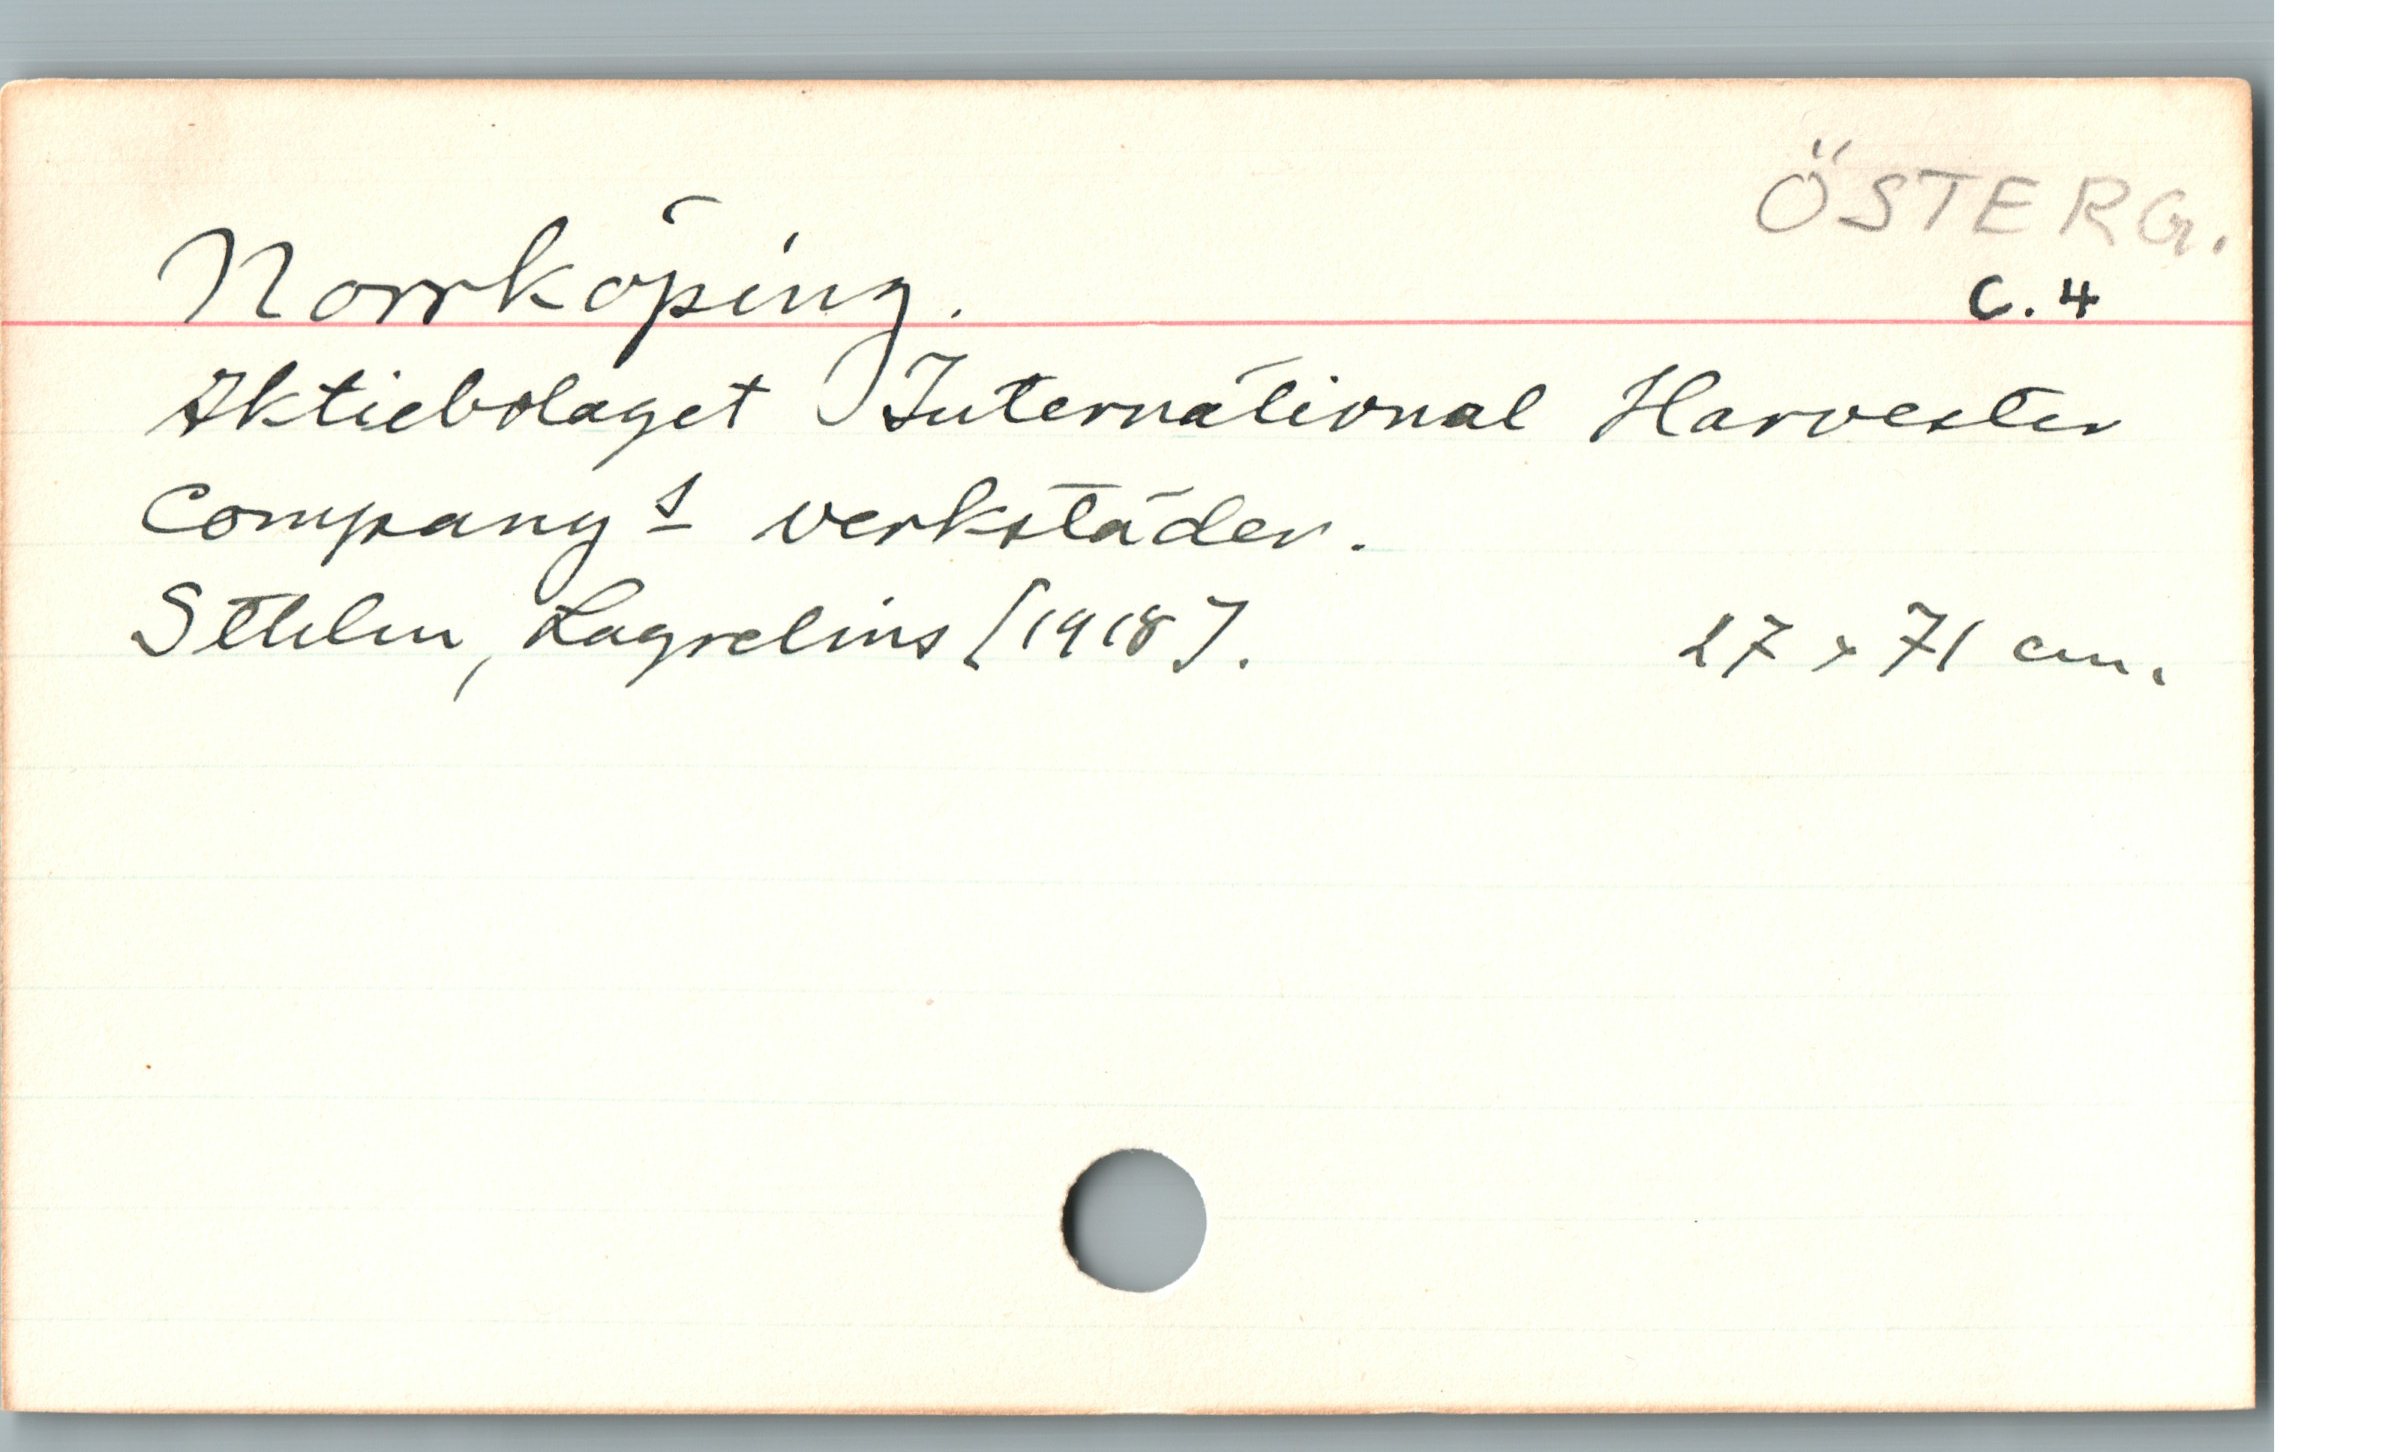 ÖSTERG.
Norrköping. C. 4
Aktiebolaget International Harvester
Companys verkstäder.
Sthlm, Lagrelius [1918]. 27 x 71 cm.